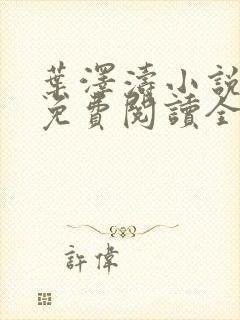 葉澤濤小說
免費閱讀全
許偉